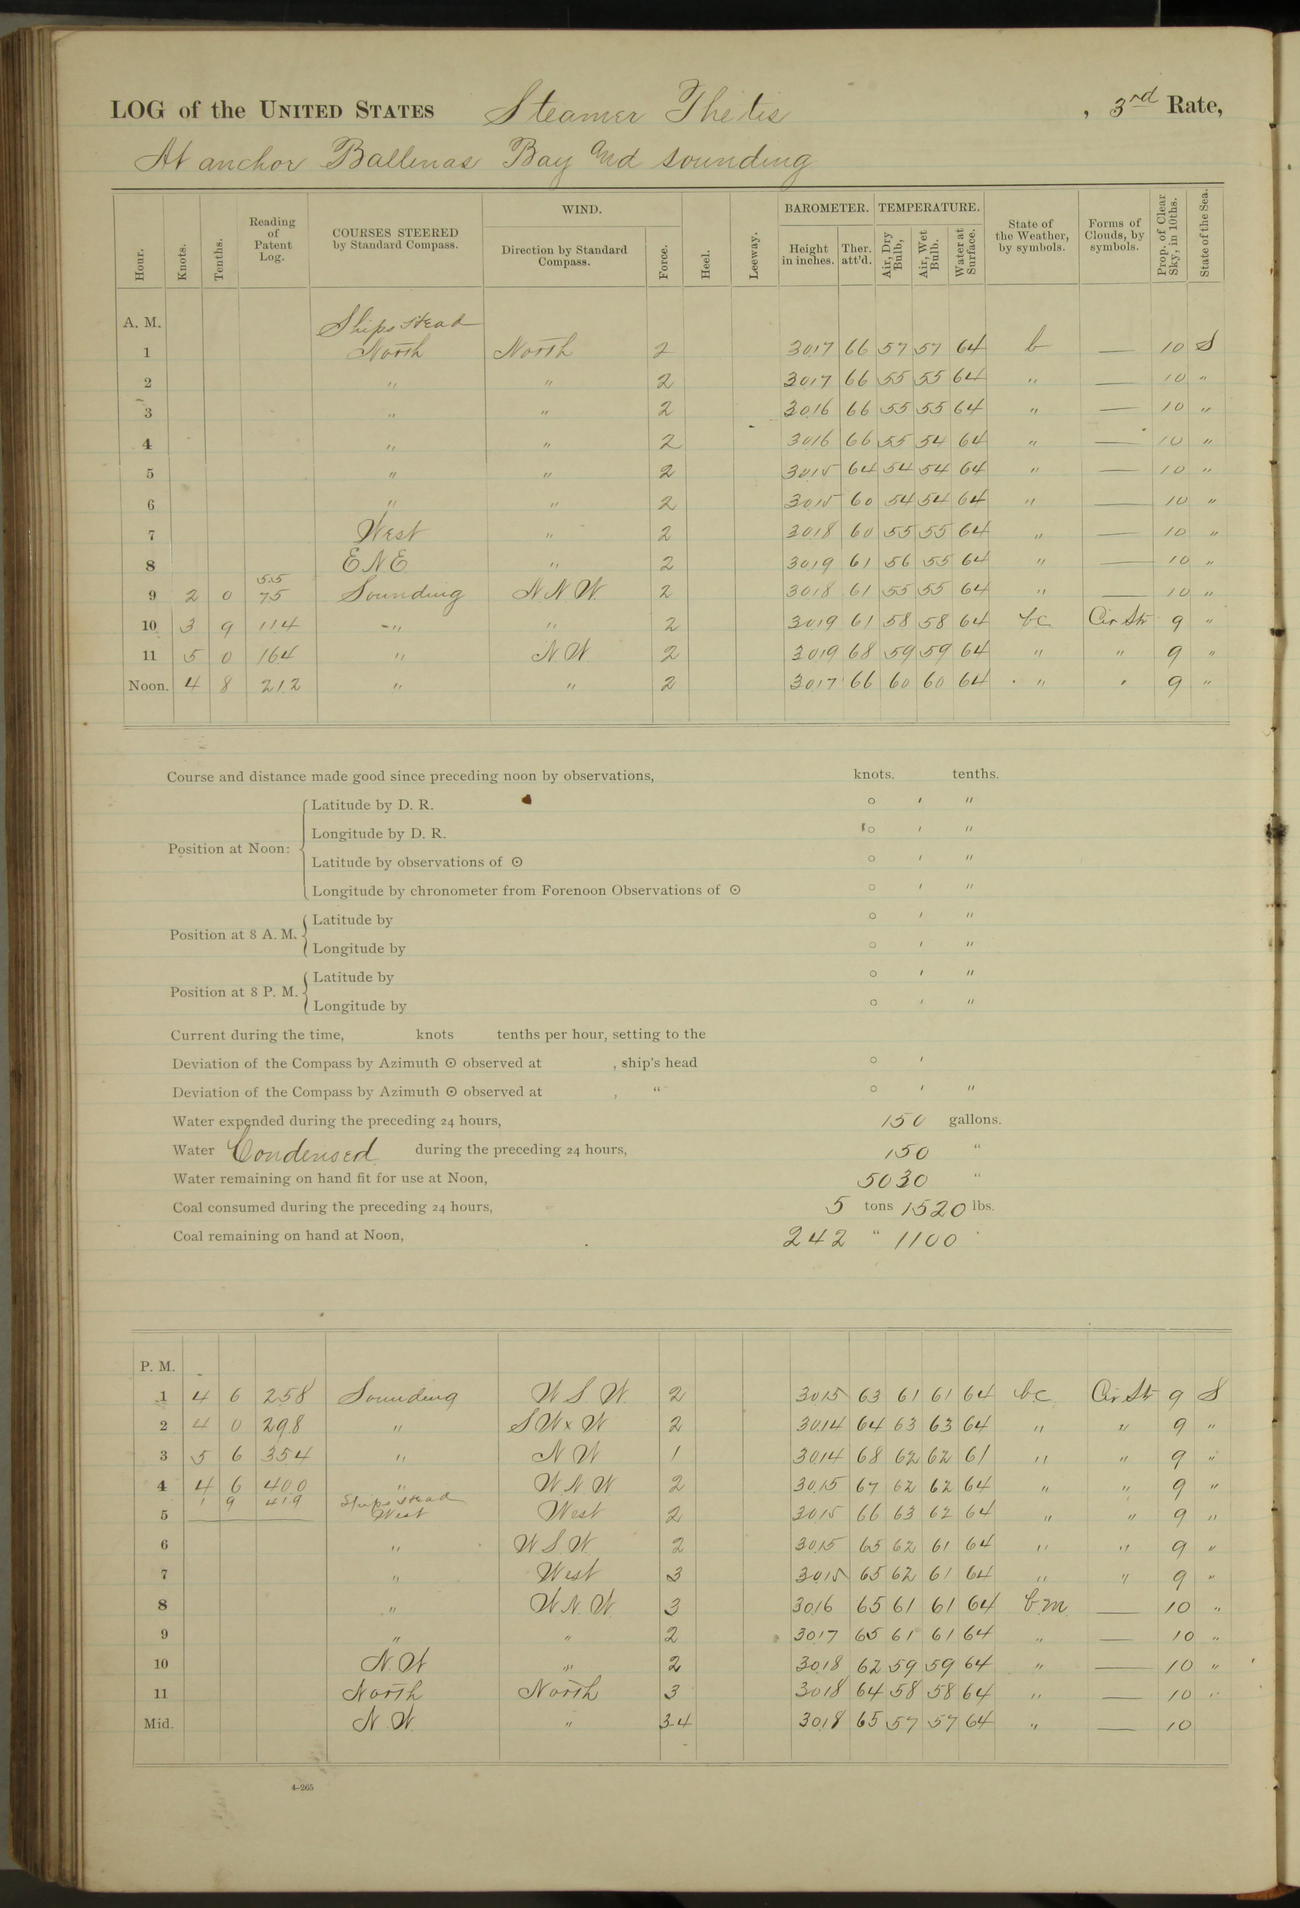 LOG of the UNITED STATES Steamer Thetis , 3rd Rate,
At anchor Ballenas Bay and sounding
Hour. Knots. Tenths. Reading of Patent Log. COURSES STEERED by Standard Compass. WIND. Direction by Standard Compass. Force. Heel. Leeway. BAROMETER. Height in inches. Ther. att'd. TEMPERATURE. Air, Dry Bulb, Air, Wet Bulb. Water at Surface. State of the Weather, by symbols. Forms of Clouds, by symbols. Prop. of Clear Sky, in 10ths. State of the Sea.
A. M. Ships Head
1 North North 2 3017 66 57 57 64 b — 10 S
2 " " 2 3017 66 55 55 64 " — 10 "
3 " " 2 3016 66 55 55 64 " — 10 "
4 " " 2 3016 66 55 54 64 " — 10 "
5 " " 2 3015 64 54 54 64 " — 10 "
6 " " 2 3015 60 54 54 64 " — 10 "
7 West " 2 3018 60 55 55 64 " — 10 "
8 ENE " 2 3019 61 56 55 64 " — 10 "
55
9 2 0 75 Sounding N N W. 2 3018 61 55 55 64 " — 10 "
10 3 9 114 " " 2 3019 61 58 58 64 bc Cir Str 9 "
11 5 0 164 " N W 2 3019 68 59 59 64 " " 9 "
Noon. 4 8 212 " " 2 3017 66 60 60 64 " " 9 "
Course and distance made good since preceding noon by observations, knots. tenths.
Position at Noon: Latitude by D. R. ° ′ ″
Longitude by D. R. ° ′ ″
Latitude by observations of ☉ ° ′ ″
Longitude by chronometer from Forenoon Observations of ☉ ° ′ ″
Position at 8 A. M. Latitude by ° ′ ″
Longitude by ° ′ ″
Position at 8 P. M. Latitude by ° ′ ″
Longitude by ° ′ ″
Current during the time, knots tenths per hour, setting to the
Deviation of the Compass by Azimuth ☉ observed at , ship's head ° ′
Deviation of the Compass by Azimuth ☉ observed at , " ° ′ ″
Water expended during the preceding 24 hours, 150 gallons.
Water Condensed during the preceding 24 hours, 150 "
Water remaining on hand fit for use at Noon, 5030 "
Coal consumed during the preceding 24 hours, 5 tons 1520 lbs.
Coal remaining on hand at Noon, 242 " 1100 "
P. M.
1 4 6 258 Sounding W S W. 2 3015 63 61 61 64 bc Cir Str 9 S
2 4 0 298 " SW x W 2 30.14 64 63 63 64 " " 9 "
3 5 6 354 " N W 1 3014 68 62 62 61 " " 9 "
4 4 6 400 " W N W 2 30.15 67 62 62 64 " " 9 "
1 9 419 Ships Head
5 West West 2 3015 66 63 62 64 " " 9 "
6 " W S W. 2 30.15 65 62 61 64 " " 9 "
7 " West 3 3015 65 62 61 64 " " 9 "
8 " W N W. 3 3016 65 61 61 64 b.m. — 10 "
9 " " 2 3017 65 61 61 64 " — 10 "
10 N. W " 2 3018 62 59 59 64 " — 10 "
11 North North 3 3018 64 58 58 64 " — 10 "
Mid. N. W. " 3-4 3018 65 57 57 64 " — 10
4–265